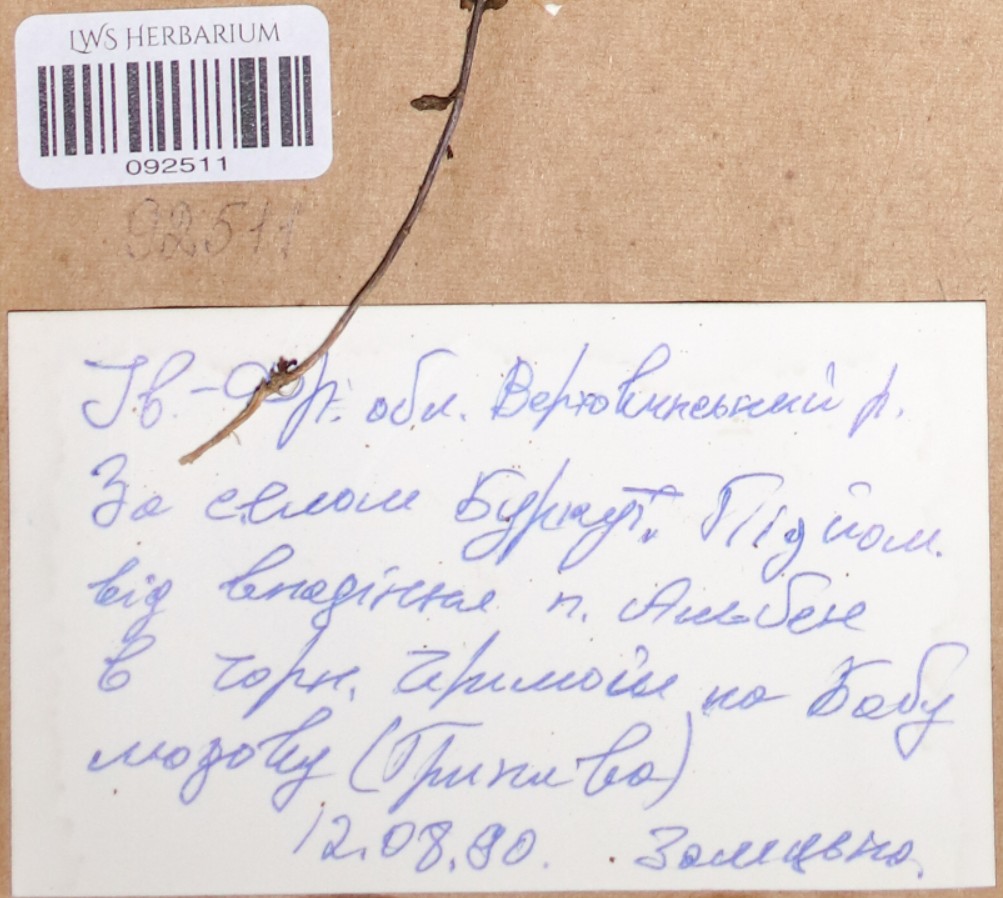 LWS HERBARIUM
092511
92511
Ів.-Фр. обл. Верховинський р.
За селом Буркут. Підйом.
від впадіння п. Альбен
в Чорн. Черемош на Бабу
людову (Гринява)
12.08.90.